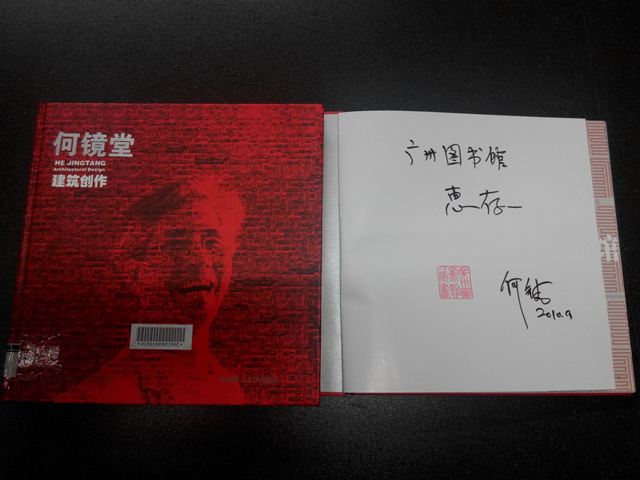 何镜堂
HE JINGTANG
Architectural Design
建筑创作
广州图书馆
惠存
何镜堂
2010.9